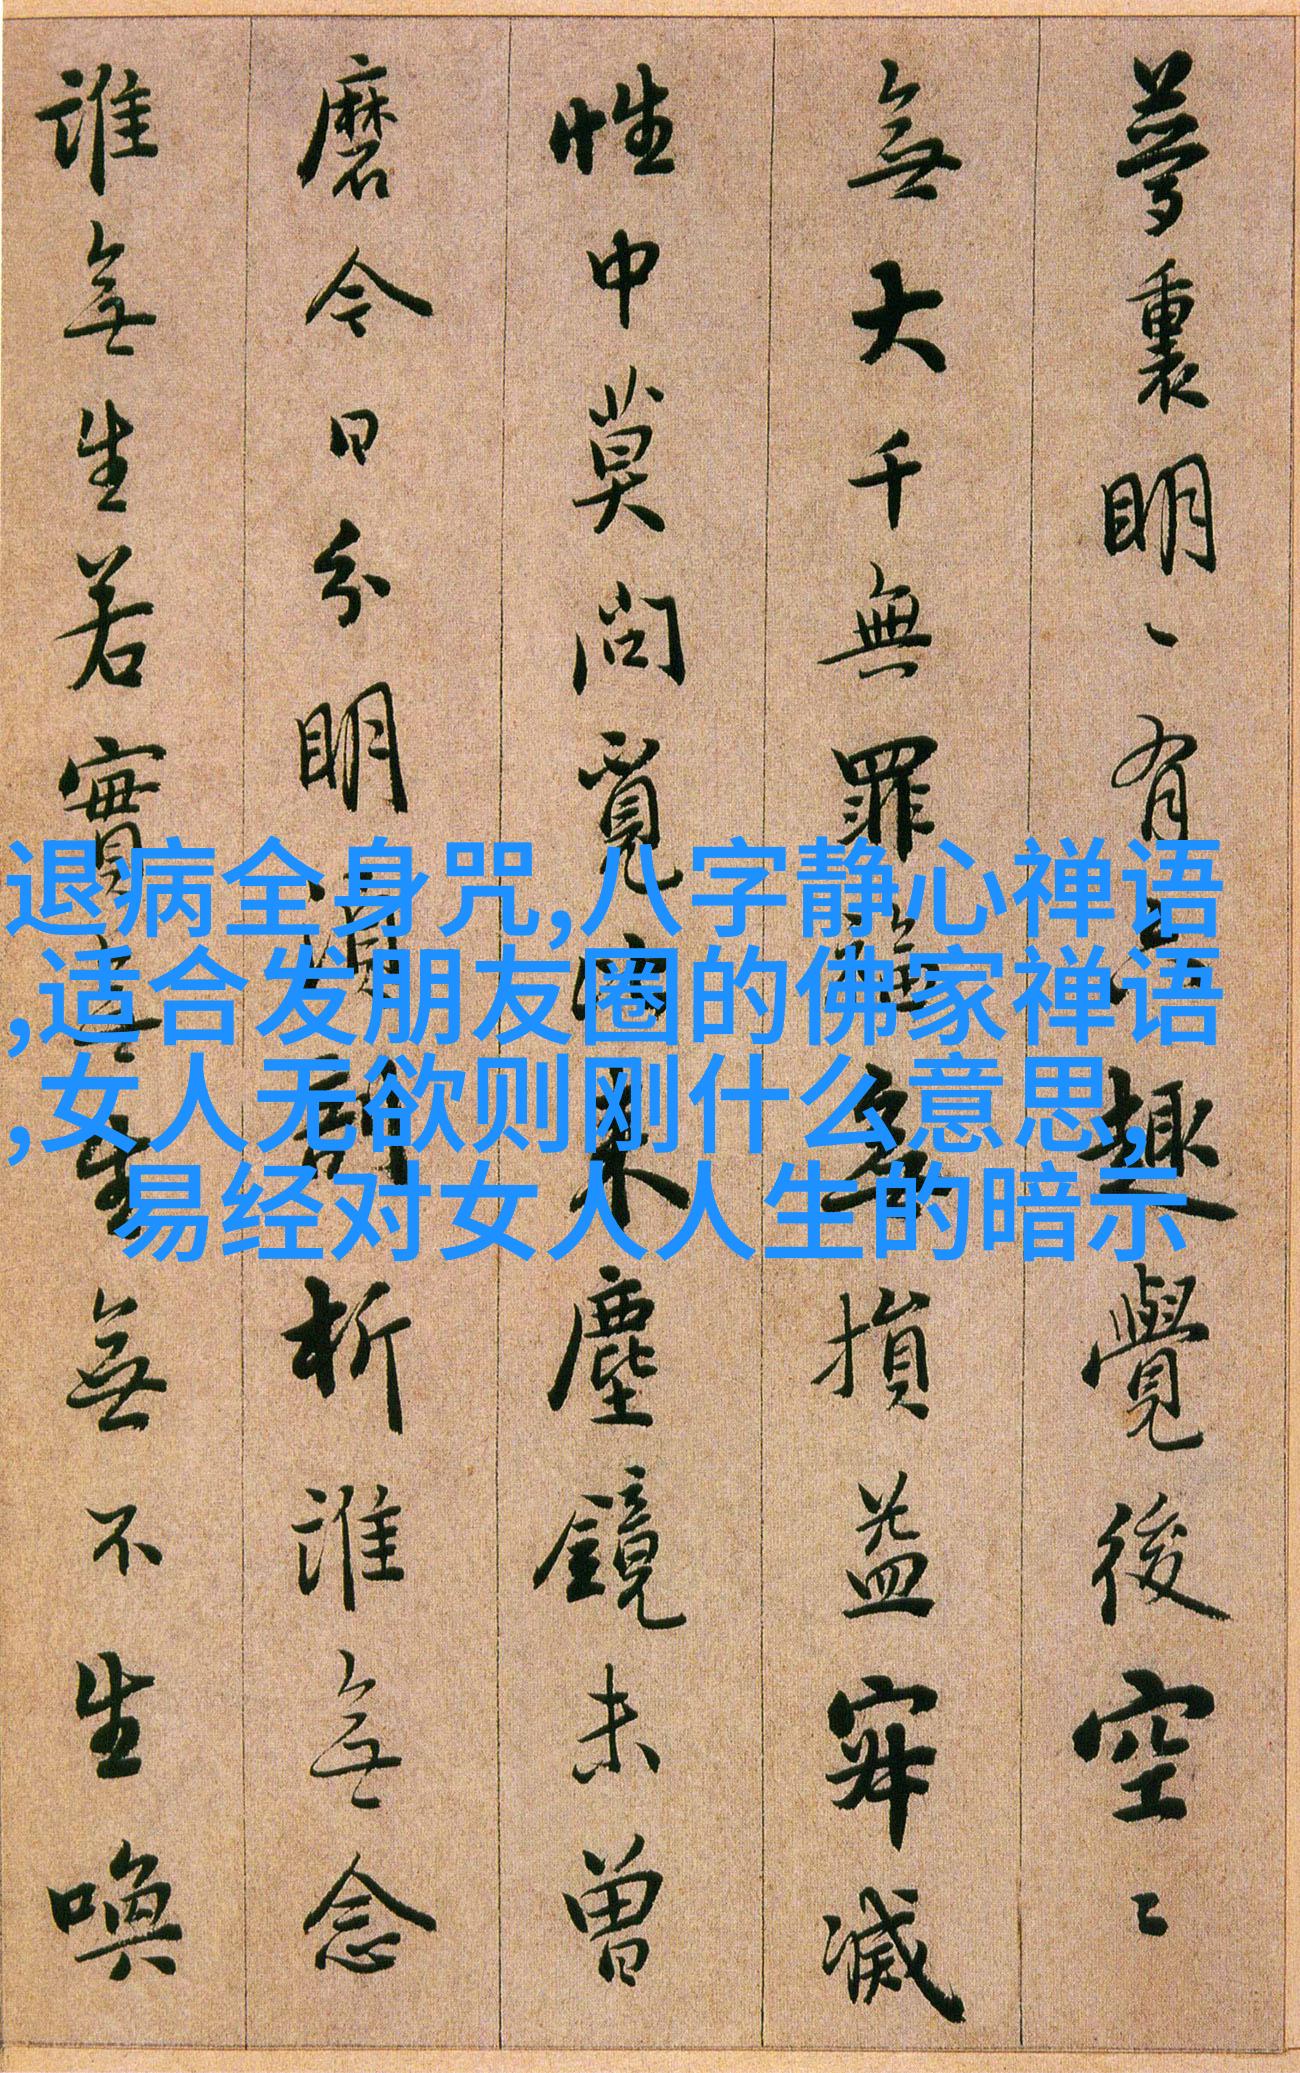 夢裏明丶有趣覺後空〻
無大千無罪無損益寂滅
性中莫問覓來塵鏡未曾
磨今日分明剖析誰無念
誰無生若實無生無不生喚
退病全身咒,八字静心禅语
,适合发朋友圈的佛家禅语
,女人无欲则刚什么意思,
易经对女人人生的暗示